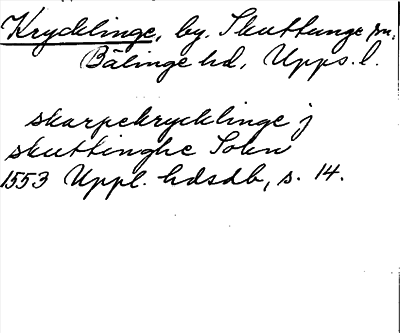 Krycklinge, by. Skuttunge sn,
Bälinge hd, Upps. l.
skarpekrycklinge j
skuttinghe Sokn
1553 Uppl. hdsdb, s. 14.